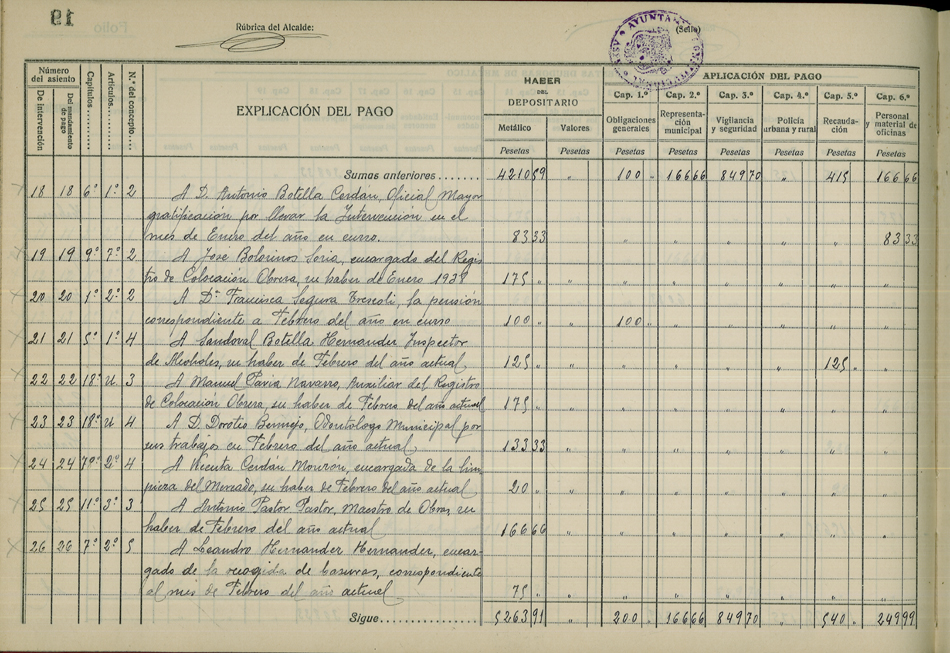 19
Folio
Rúbrica del Alcalde:
(Sello)
AYUNTA
Número del asiento
De intervención
Del mandamiento de pago
Capítulos
Artículos
N.º del concepto
EXPLICACIÓN DEL PAGO
HABER DEL DEPOSITARIO
Metálico Valores
Pesetas Pesetas
APLICACIÓN DEL PAGO
Cap. 1.º Cap. 2.º Cap. 3.º Cap. 4.º Cap. 5.º Cap. 6.º
Obligaciones generales
Representación municipal
Vigilancia y seguridad
Policía urbana y rural
Recaudación
Personal y material de oficinas
Pesetas Pesetas Pesetas Pesetas Pesetas Pesetas
Sumas anteriores 4210 59 100 " 166 66 849 70 415 166 66
18 18 6º 1º 2 A D. Antonio Botella Cerdán, Oficial Mayor
gratificación por llevar la Intervención en el
mes de Enero del año en curso. 83 33 " " " " 83 33
19 19 9º 7º 2 A José Bolorinos Soria, encargado del Regis-
tro de Colocación Obrera, su haber de Enero 1938 175 " " " " " "
20 20 1º 2º 2 A Dª Francisca Segura, la pensión
correspondiente a Febrero del año en curso 100 " " 100 " " " " "
21 21 5º 1º 4 A Sandoval Botella Hernander Inspector
de Alcoholes, su haber de Febrero del año actual 125 " " " " " " 125 "
22 22 18º U 3 A Manuel Pavia Navarro, Auxiliar del Registro
de Colocación Obrera, su haber de Febrero del año actual 175 " " " " " "
23 23 18º U 4 A D. Doroteo Bermejo, Odontólogo Municipal por
sus trabajos en Febrero del año actual 133 33 " " " " "
24 24 7º 2º 4 A Vicenta Cerdán, encargada de la lim-
pieza del Mercado, su haber de Febrero del año actual 20 " " " " " "
25 25 11º 3º 3 A Antonio Pastor Pastor, Maestro de Obras, su
haber de Febrero del año actual 166 66 " " " " "
26 26 7º 2º 5 A Leandro Hernander Hernander, encar-
gado de la recogida de basuras, correspondiente
al mes de Febrero del año actual 75 " " " " " "
Sigue 5263 91 " 200 " 166 66 849 70 " 540 " 249 99